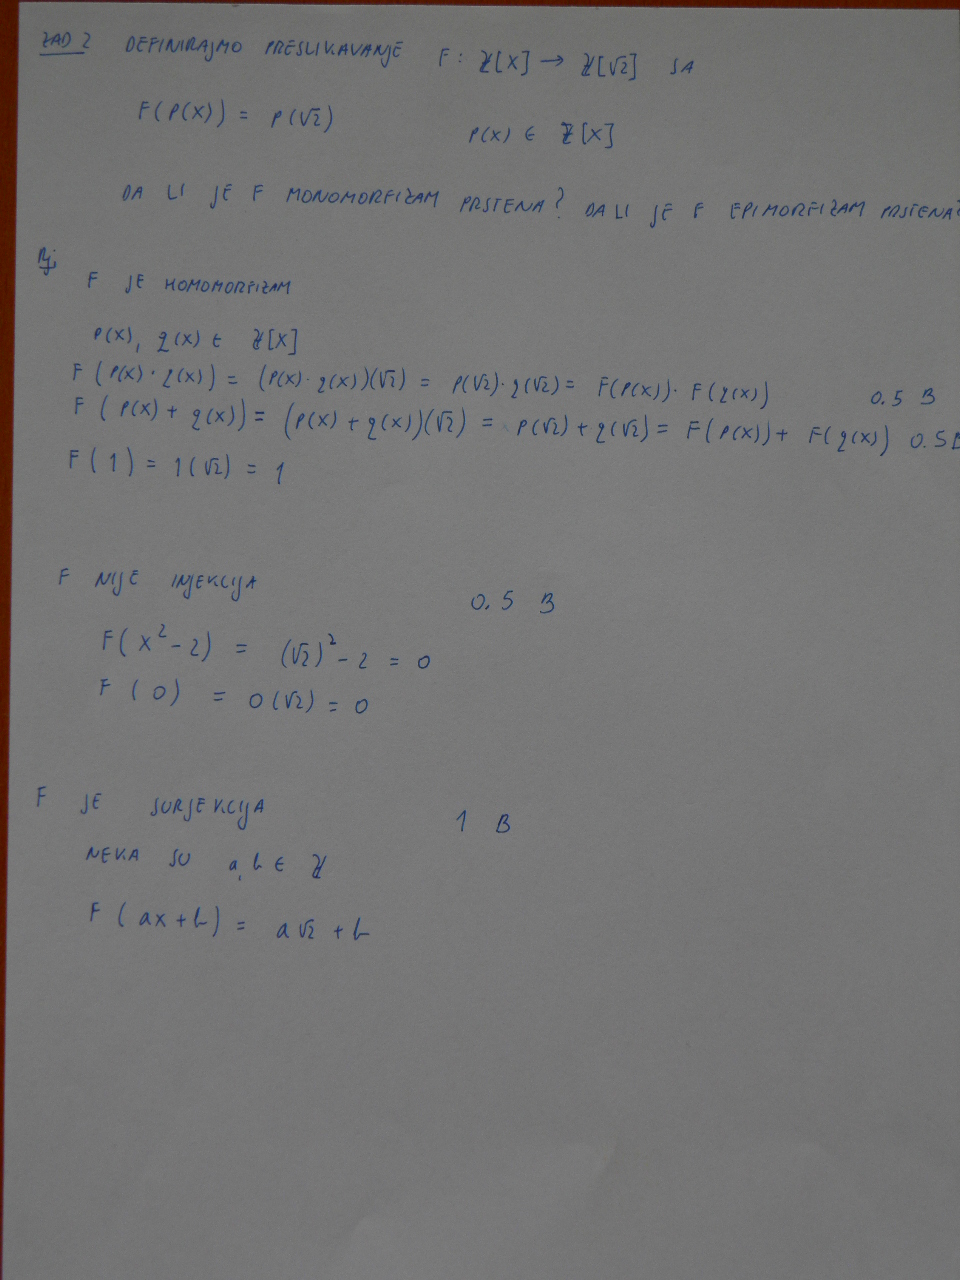 ZAD 2 DEFINIRAJMO PRESLIKAVANJE F: ℤ[X] → ℤ[√2] SA
F(P(X)) = P(√2) P(X) ∈ ℤ[X]
DA LI JE F MONOMORFIZAM PRSTENA? DA LI JE F EPIMORFIZAM PRSTENA?
Rj:
F JE HOMOMORFIZAM
P(X), q(X) ∈ ℤ[X]
F(P(X)·q(X)) = (P(X)·q(X))(√2) = P(√2)·q(√2) = F(P(X))·F(q(X)) 0.5 B
F(P(X)+q(X)) = (P(X)+q(X))(√2) = P(√2)+q(√2) = F(P(X))+F(q(X)) 0.5B
F(1) = 1(√2) = 1
F NIJE INJEKCIJA 0.5 B
F(X²-2) = (√2)²-2 = 0
F(0) = 0(√2) = 0
F JE SURJEKCIJA 1 B
NEKA SU a, b ∈ ℤ
F(ax+b) = a√2+b